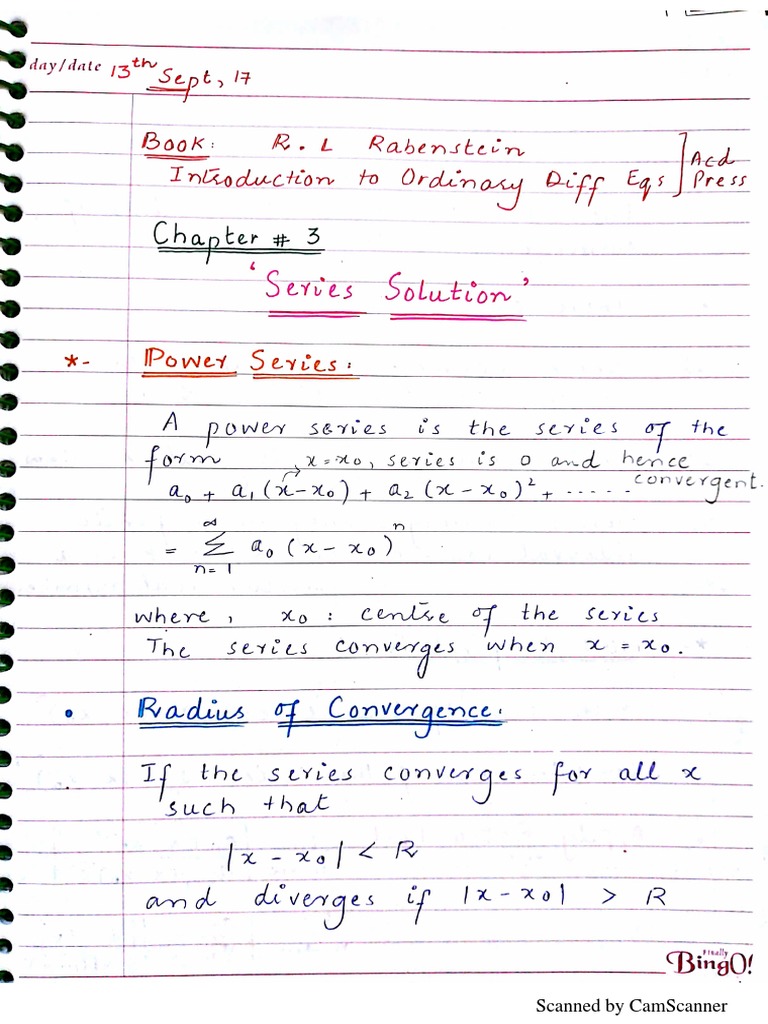 day/date 13th Sept, 17
Book: R. L Rabenstein
Introduction to Ordinary Diff Eqs ] Acd Press
Chapter # 3
'Series Solution'
*- Power Series:
A power series is the series of the
form x = x0, series is 0 and hence convergent.
a0 + a1 (x-x0) + a2 (x-x0)² + ......
= ∞ Σ n=1 a0 (x-x0)^n
where, x0 : centre of the series
The series converges when x = x0.
• Radius of Convergence.
If the series converges for all x
such that
|x - x0| < R
and diverges if |x-x0| > R
Finally
BingO!
Scanned by CamScanner